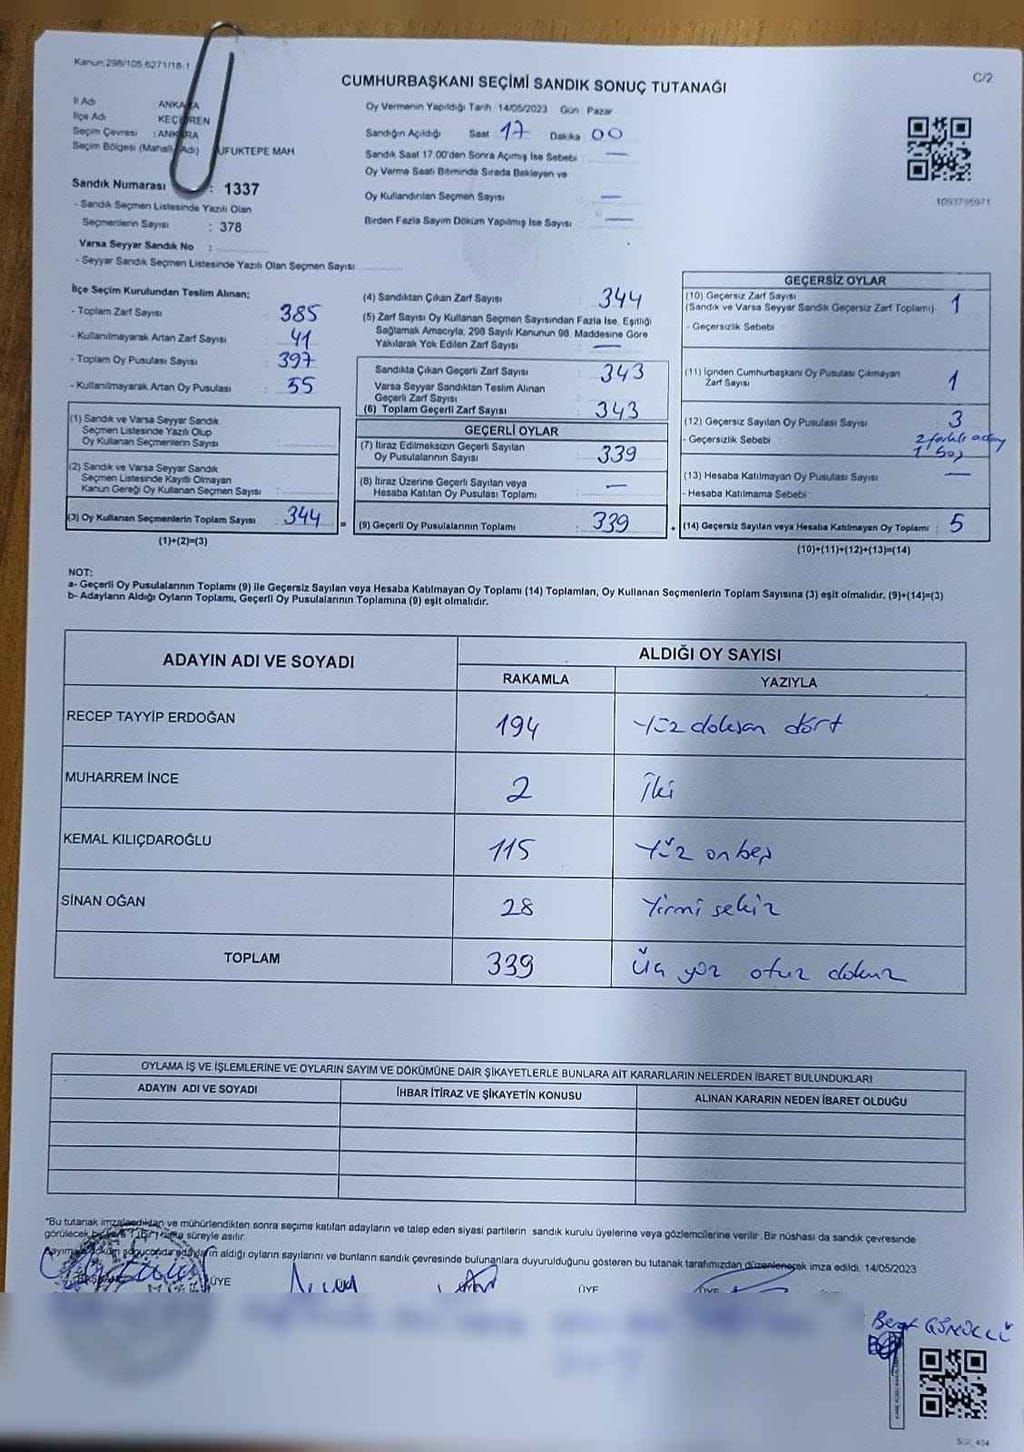 Kanun:298/105,6271/18-1
C/2
CUMHURBAŞKANI SEÇİMİ SANDIK SONUÇ TUTANAĞI
İl Adı ANKARA
İlçe Adı KEÇİÖREN
Seçim Çevresi : ANKARA
Seçim Bölgesi (Mahalle Adı) UFUKTEPE MAH
Sandık Numarası : 1337
- Sandık Seçmen Listesinde Yazılı Olan
Seçmenlerin Sayısı : 378
Varsa Seyyar Sandık No :
- Seyyar Sandık Seçmen Listesinde Yazılı Olan Seçmen Sayısı
Oy Vermenin Yapıldığı Tarih 14/05/2023 Gün Pazar
Sandığın Açıldığı Saat 17 Dakika 00
Sandık Saat 17:00'den Sonra Açılmış İse Sebebi : —
Oy Verme Saati Bitiminde Sırada Bekleyen ve
Oy Kullandırılan Seçmen Sayısı : —
Birden Fazla Sayım Döküm Yapılmış İse Sayısı : —
1093795971
İlçe Seçim Kurulundan Teslim Alınan;
- Toplam Zarf Sayısı : 385
- Kullanılmayarak Artan Zarf Sayısı : 41
- Toplam Oy Pusulası Sayısı : 397
- Kullanılmayarak Artan Oy Pusulası : 55
(1) Sandık ve Varsa Seyyar Sandık
Seçmen Listesinde Yazılı Olup
Oy Kullanan Seçmenlerin Sayısı :
(2) Sandık ve Varsa Seyyar Sandık
Seçmen Listesinde Kayıtlı Olmayan
Kanun Gereği Oy Kullanan Seçmen Sayısı :
(3) Oy Kullanan Seçmenlerin Toplam Sayısı : 344
(1)+(2)=(3)
(4) Sandıktan Çıkan Zarf Sayısı : 344
(5) Zarf Sayısı Oy Kullanan Seçmen Sayısından Fazla İse, Eşitliği
Sağlamak Amacıyla; 298 Sayılı Kanunun 98. Maddesine Göre
Yakılarak Yok Edilen Zarf Sayısı : —
Sandıkta Çıkan Geçerli Zarf Sayısı : 343
Varsa Seyyar Sandıktan Teslim Alınan
Geçerli Zarf Sayısı :
(6) Toplam Geçerli Zarf Sayısı : 343
GEÇERLİ OYLAR
(7) İtiraz Edilmeksizin Geçerli Sayılan
Oy Pusulalarının Sayısı : 339
(8) İtiraz Üzerine Geçerli Sayılan veya
Hesaba Katılan Oy Pusulası Toplamı : —
= (9) Geçerli Oy Pusulalarının Toplamı : 339
GEÇERSİZ OYLAR
(10) Geçersiz Zarf Sayısı : 1
(Sandık ve Varsa Seyyar Sandık Geçersiz Zarf Toplamı)
- Geçersizlik Sebebi
(11) İçinden Cumhurbaşkanı Oy Pusulası Çıkmayan
Zarf Sayısı 1
(12) Geçersiz Sayılan Oy Pusulası Sayısı : 3
- Geçersizlik Sebebi 2 farklı aday
1 boş
(13) Hesaba Katılmayan Oy Pusulası Sayısı : —
- Hesaba Katılmama Sebebi :
+ (14) Geçersiz Sayılan veya Hesaba Katılmayan Oy Toplamı : 5
(10)+(11)+(12)+(13)=(14)
NOT:
a- Geçerli Oy Pusulalarının Toplamı (9) ile Geçersiz Sayılan veya Hesaba Katılmayan Oy Toplamı (14) Toplamları, Oy Kullanan Seçmenlerin Toplam Sayısına (3) eşit olmalıdır. (9)+(14)=(3)
b- Adayların Aldığı Oyların Toplamı, Geçerli Oy Pusulalarının Toplamına (9) eşit olmalıdır.
ADAYIN ADI VE SOYADI
ALDIĞI OY SAYISI
RAKAMLA YAZIYLA
RECEP TAYYİP ERDOĞAN 194 Yüz doksan dört
MUHARREM İNCE 2 İki
KEMAL KILIÇDAROĞLU 115 Yüz on beş
SİNAN OĞAN 28 Yirmi sekiz
TOPLAM 339 Üç yüz otuz dokuz
OYLAMA İŞ VE İŞLEMLERİNE VE OYLARIN SAYIM VE DÖKÜMÜNE DAİR ŞİKAYETLERLE BUNLARA AİT KARARLARIN NELERDEN İBARET BULUNDUKLARI
ADAYIN ADI VE SOYADI İHBAR İTİRAZ VE ŞİKAYETİN KONUSU ALINAN KARARIN NEDEN İBARET OLDUĞU
"Bu tutanak imzalandıktan ve mühürlendikten sonra seçime katılan adayların ve talep eden siyasi partilerin sandık kurulu üyelerine ve gözlemcilerine verilir. Bir nüshası da sandık çevresinde
görülecek bir yere 1 (bir) hafta süreyle asılır.
Sayım ve döküm sonucunda adayların aldığı oyların sayılarını ve bunların sandık çevresinde bulunanlara duyurulduğunu gösteren bu tutanak tarafımızdan düzenlenerek imza edildi. 14/05/2023
BAŞKAN ÜYE ÜYE ÜYE